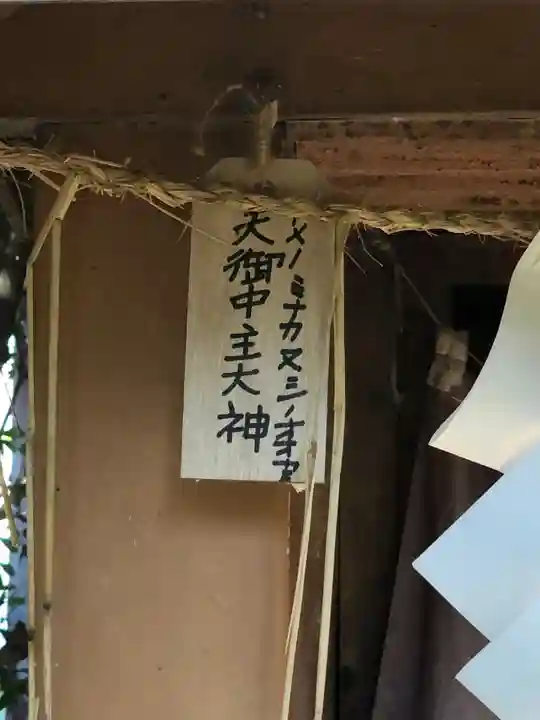 メノミナカヌシノオオカ
天御中主大神